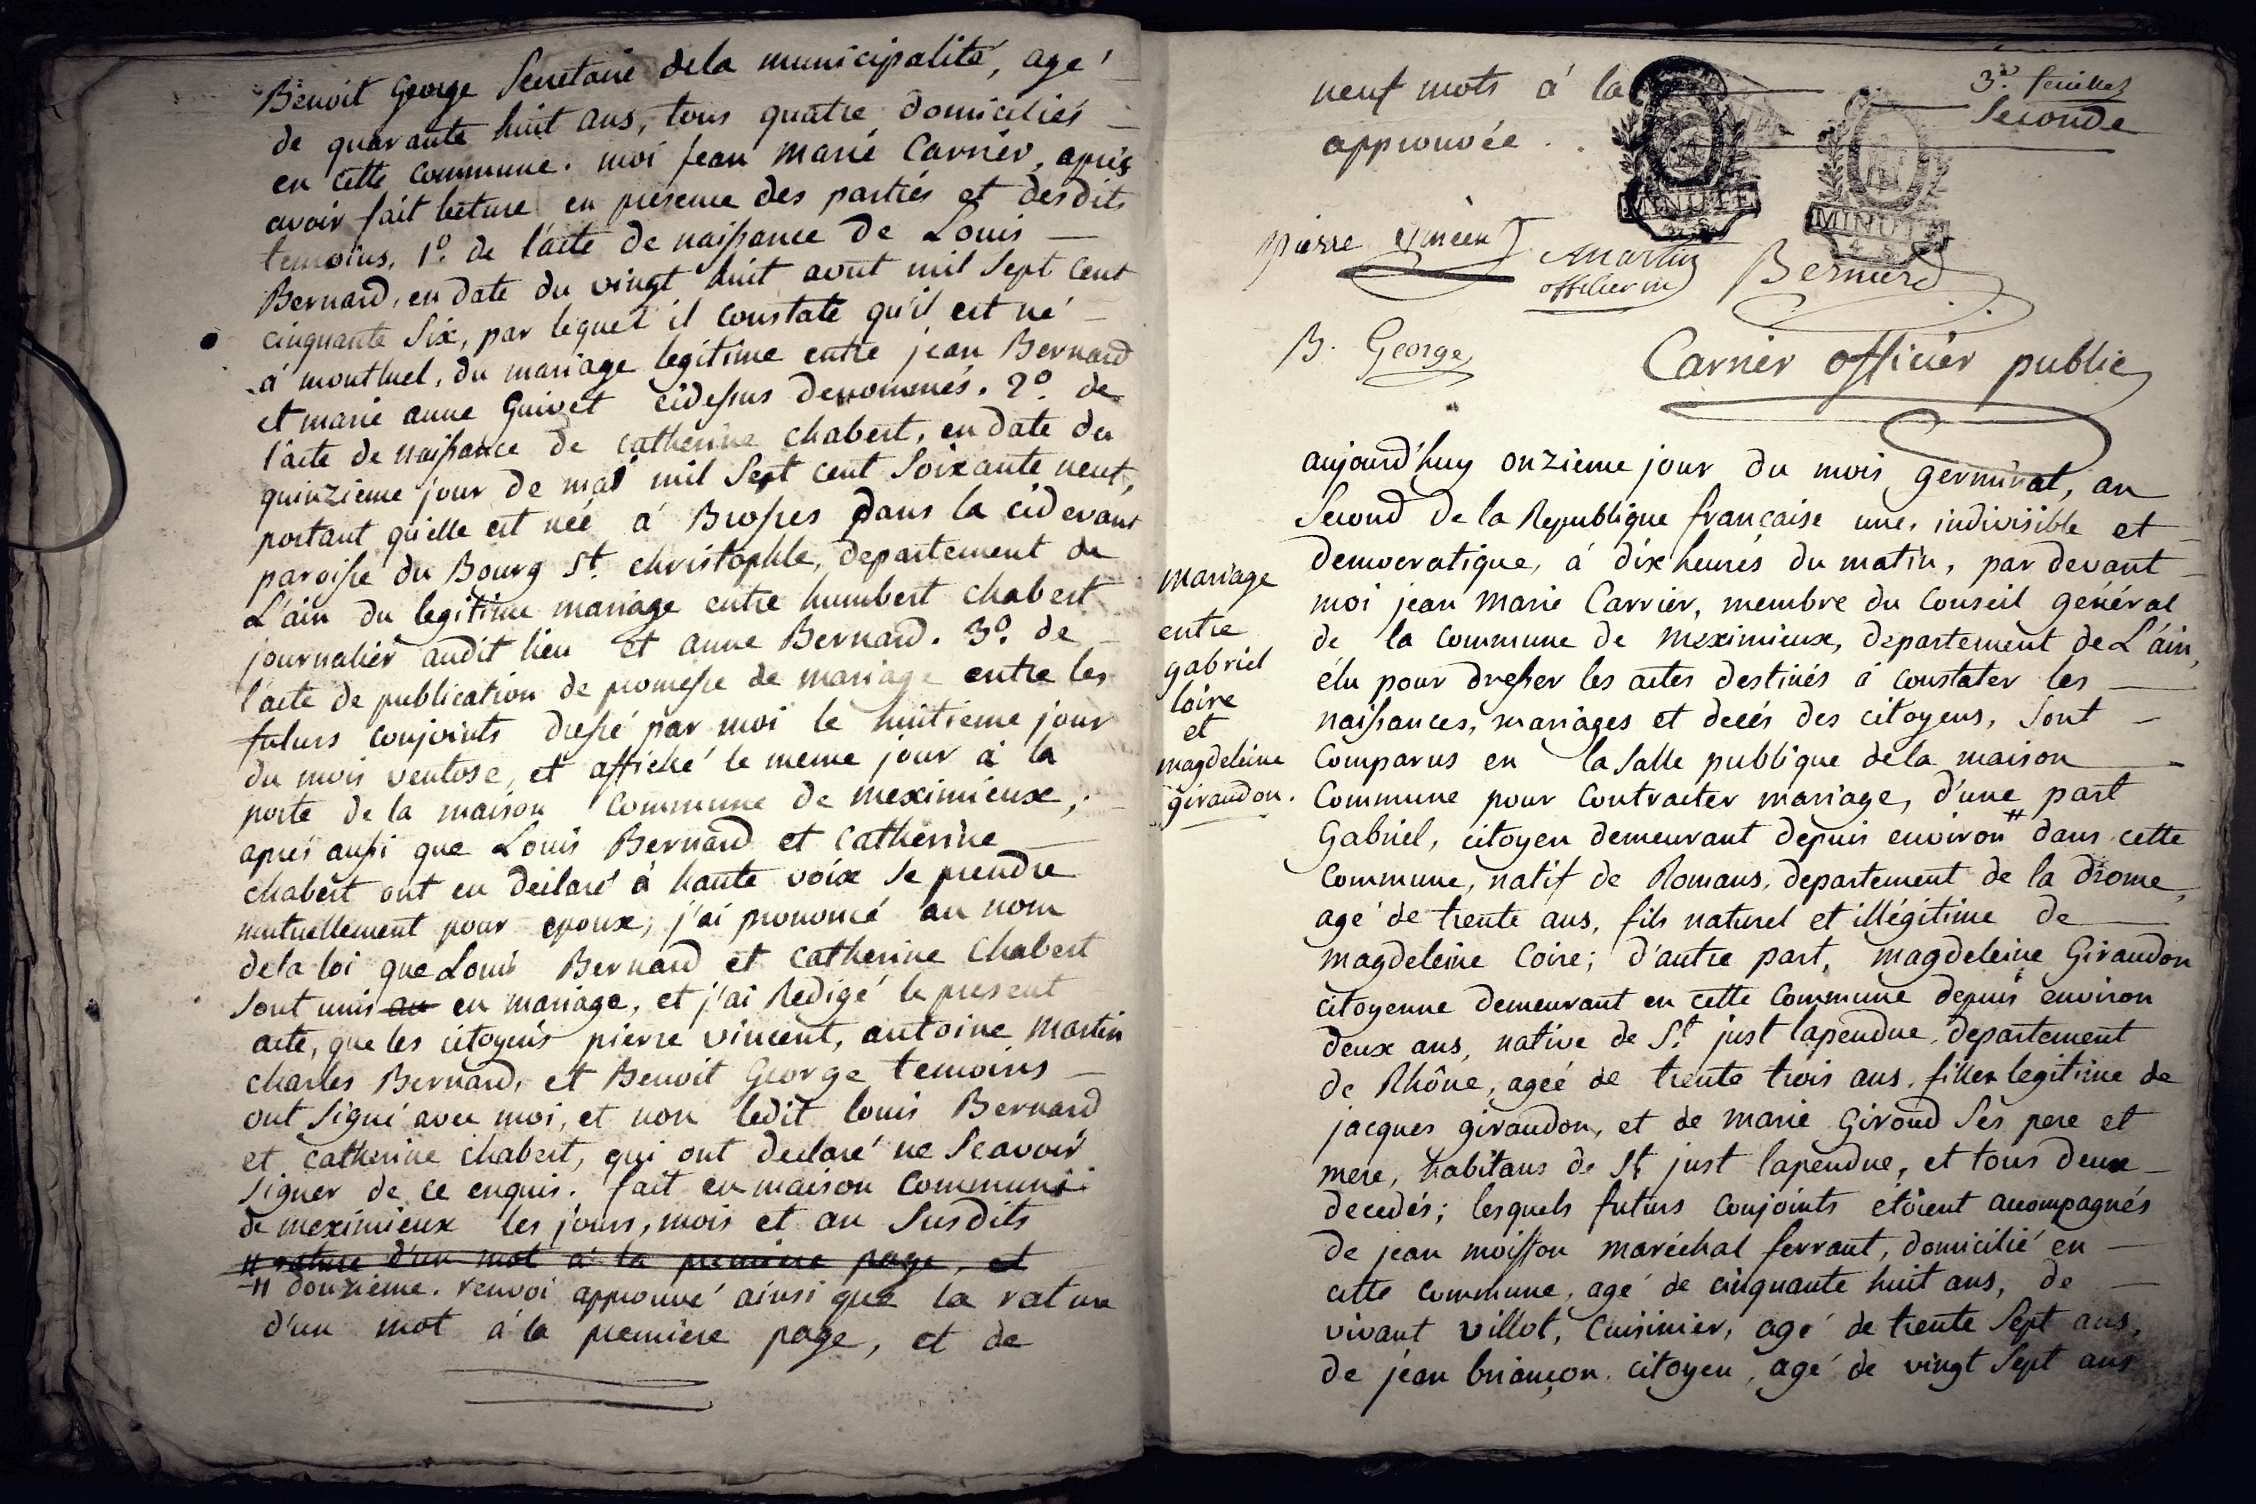 Benoit George Secretaire dela municipalité, agé
de quarante huit ans, tous quatre domiciliés
en cette commune. moi jean marie Carrier, après
avoir fait lecture en presence des parties et desdits
temoins, 1º. de l'acte de naissance de Louis
Bernard, en date du vingt huit aout mil sept cent
cinquante six, par lequel il constate qu'il est né
à montluel, du mariage legitime entre jean Bernard
et marie anne Guivet cidessus denommés. 2º. de
l'acte de naissance de catherine chabert, en date du
quinzieme jour de mai mil sept cent soixante neuf,
portant qu'elle est née à Brosses dans la cidevant
paroisse du Bourg St. christophle, departement de
L'ain du legitime mariage entre humbert chabert
journalier audit lieu et anne Bernard. 3º. de
l'acte de publication de promesse de mariage entre les
futurs conjoints dressé par moi le huitieme jour
du mois ventose, et affiché le meme jour à la
porte de la maison commune de meximieux,
après aussi que Louis Bernard et catherine
chabert ont eu declaré à haute voix se prendre
mutuellement pour epoux, j'ai prononcé au nom
dela loi que Louis Bernard et catherine Chabert
sont unis au en mariage, et j'ai Redigé le present
acte, que les citoyens pierre vincent, antoine martin
charles Bernard, et Benoit George temoins
ont signé avec moi, et non ledit louis Bernard
et catherine chabert, qui ont declaré ne scavoir
signer de ce enquis. fait en maison Commune
de meximieux les jours, mois et an susdits
# rature d'un mot à la premiere page, et
# douzieme. renvoi approuvé ainsi que la rature
d'un mot à la premiere page, et de
neuf mots à la
3e. feuillet
Seconde
approuvée .
MINUTE
4 S
MINUTE
4 S
pierre vincent
Martin
officier m
Bernard
B. George
Carrier officier public
mariage
entre
gabriel
loire
et
magdeleine
giraudon.
aujourd'huy onzieme jour du mois germinal, an
Second de la Republique française une, indivisible et
democratique, à dix heures du matin, par devant
moi jean marie Carrier, membre du Conseil général
de la commune de Meximieux, departement de L'ain,
élu pour dresser les actes destinés à constater les
naissances, mariages et decés des citoyens, sont
Comparus en la salle publique dela maison
Commune pour Contracter mariage, d'une part
Gabriel, citoyen demeurant depuis environ # dans cette
Commune, natif de Romans, departement de la drome,
agé de trente ans, fils naturel et illégitime de
magdeleine loire; d'autre part, magdeleine Giraudon
citoyenne demeurant en cette Commune depuis environ
deux ans, native de St. just lapendue, departement
de Rhône, ageé de trente trois ans, fille legitime de
jacques giraudon, et de marie Giroud ses pere et
mere, habitans de St. just lapendue, et tous deux
decedés; lesquels futurs conjoints etoient accompagnés
de jean moisson maréchal ferrant, domicilié en
cette commune, agé de cinquante huit ans, de
vivant villot, Cuisinier, agé de trente sept ans,
de jean briançon citoyen, agé de vingt sept ans